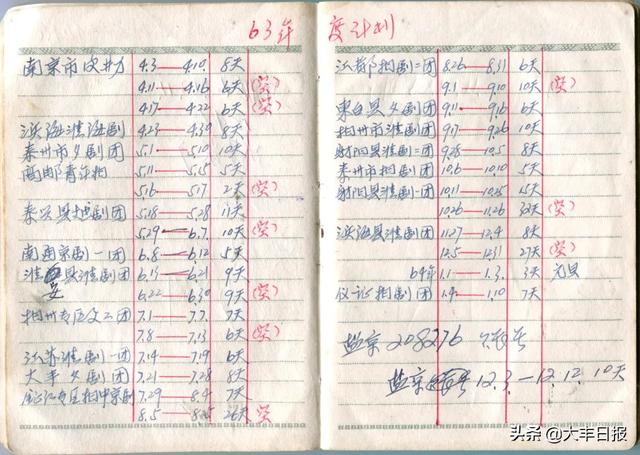 63年
南京市皮影 4.3—4.10 8天
4.11—4.16 6天 (空)
4.17—4.22 6天 (空)
滨海淮海剧 4.23—4.30 8天
泰州市夕剧团 5.1—5.10 10天
高邮青年扬 5.11—5.15 5天
5.16—5.17 2天 (空)
泰兴县越剧团 5.18—5.28 11天
5.29—6.7 10天 (空)
南通京剧一团 6.8—6.12 5天
淮安县淮剧团 6.13—6.21 9天
6.22—6.30 9天 (空)
扬州专区文工团 7.1—7.7 7天
7.8—7.13 6天 (空)
江苏淮剧一团 7.14—7.19 6天
大丰夕剧团 7.21—7.28 8天
镇江专区扬中京剧 7.29—8.4 7天
8.5— 26天 (空)
度计划
江都扬剧二团 8.26—8.31 6天
9.1—9.10 10天 (空)
东台县夕剧团 9.11—9.16 6天
扬州市淮剧团 9.17—9.26 10天
射阳县淮剧二团 9.28—10.5 8天
泰州市扬剧团 10.6—10.10 5天
射阳县淮剧一团 10.11—10.25 15天
10.26—11.26 32天 (空)
滨海县淮剧团 11.27—12.4 8天
12.5—12.31 27天 (空)
64年1.1—1.3 3天 元旦
仪征扬剧团 1.4—1.10 7天
盐京 208276
盐京 12.3—12.12 10天
头条@大丰日报